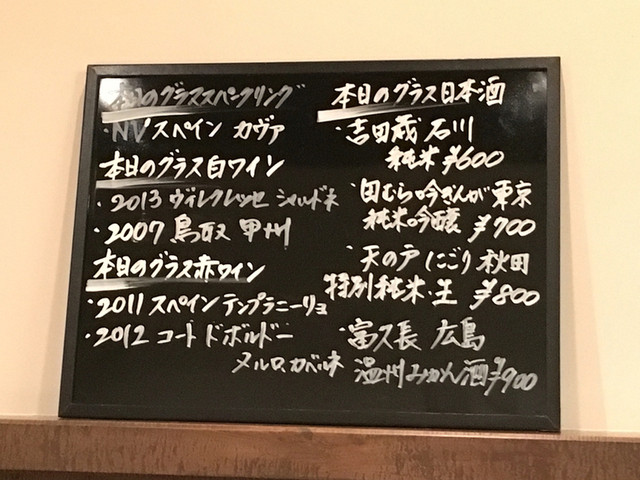 本日のグラススパークリング
・NV スペイン カヴァ
本日のグラス白ワイン
・2013 ヴィレクレッセ シャルドネ
・2007 鳥取 甲州
本日のグラス赤ワイン
・2011 スペイン テンプラニーリョ
・2012 コート ド ボルドー
メルロ、カベルネ
本日のグラス日本酒
・吉田蔵 石川
純米 ¥600
・田むら 吟ぎんが 東京
純米吟醸 ¥700
・天の戸 にごり 秋田
特別純米・生 ¥800
・富久長 広島
温州みかん酒 ¥900